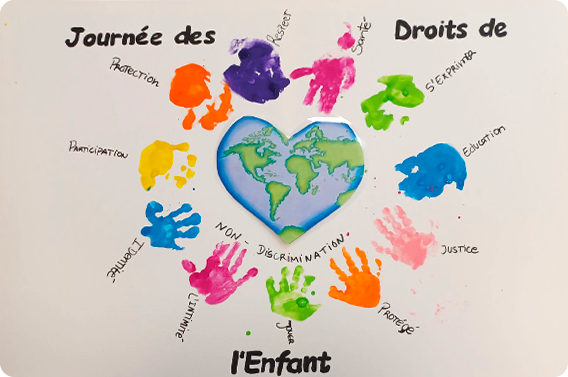 Journée des
Droits de
Respect
Santé
Protection
S'exprimer
Participation
Education
Identité
NON-DISCRIMINATION.
Justice
L'intimité
Jouer
Protégé
l'Enfant